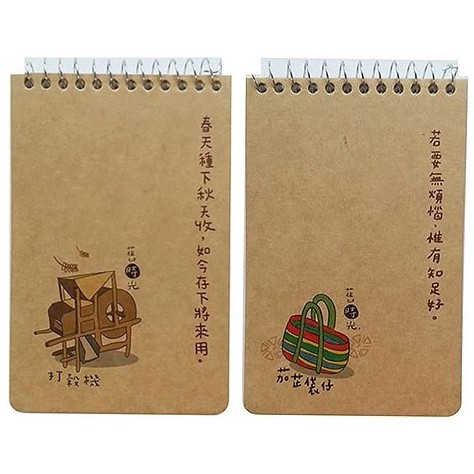 春天種下秋天收，如今存下將來用。
茝
時光
打穀機
若要無煩惱，惟有知足好。
茝
時光
茄芷袋仔